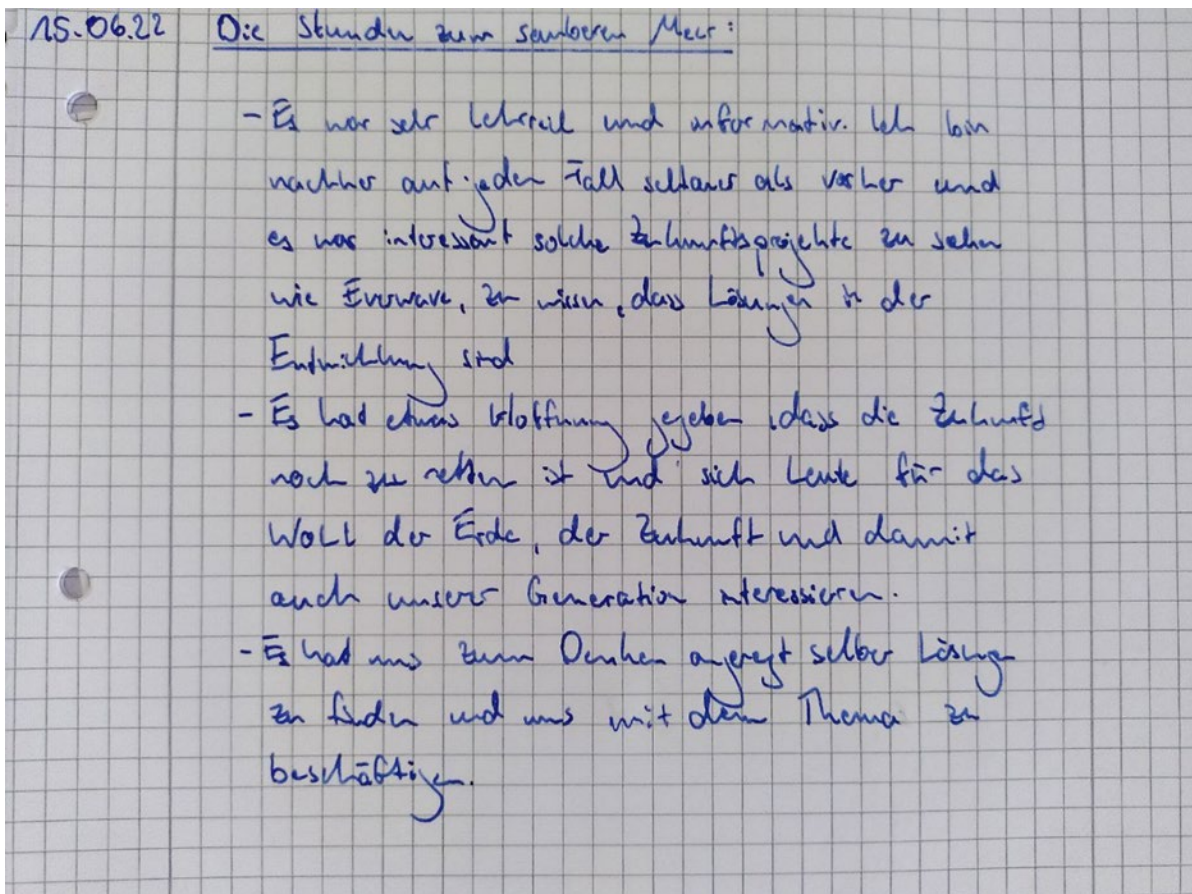 15.06.22 Die Stunden zum sauberen Meer:
- Es war sehr lehrreich und informativ. Ich bin
nachher auf jeden Fall schlauer als vorher und
es war interessant solche Zukunftsprojekte zu sehen
wie Everwave, zu wissen, dass Lösungen in der
Entwicklung sind
- Es hat etwas Hoffnung gegeben, dass die Zukunft
noch zu retten ist und sich Leute für das
Wohl der Erde, der Zukunft und damit
auch unserer Generation interessieren.
- Es hat uns zum Denken angeregt selber Lösungen
zu finden und uns mit dem Thema zu
beschäftigen.